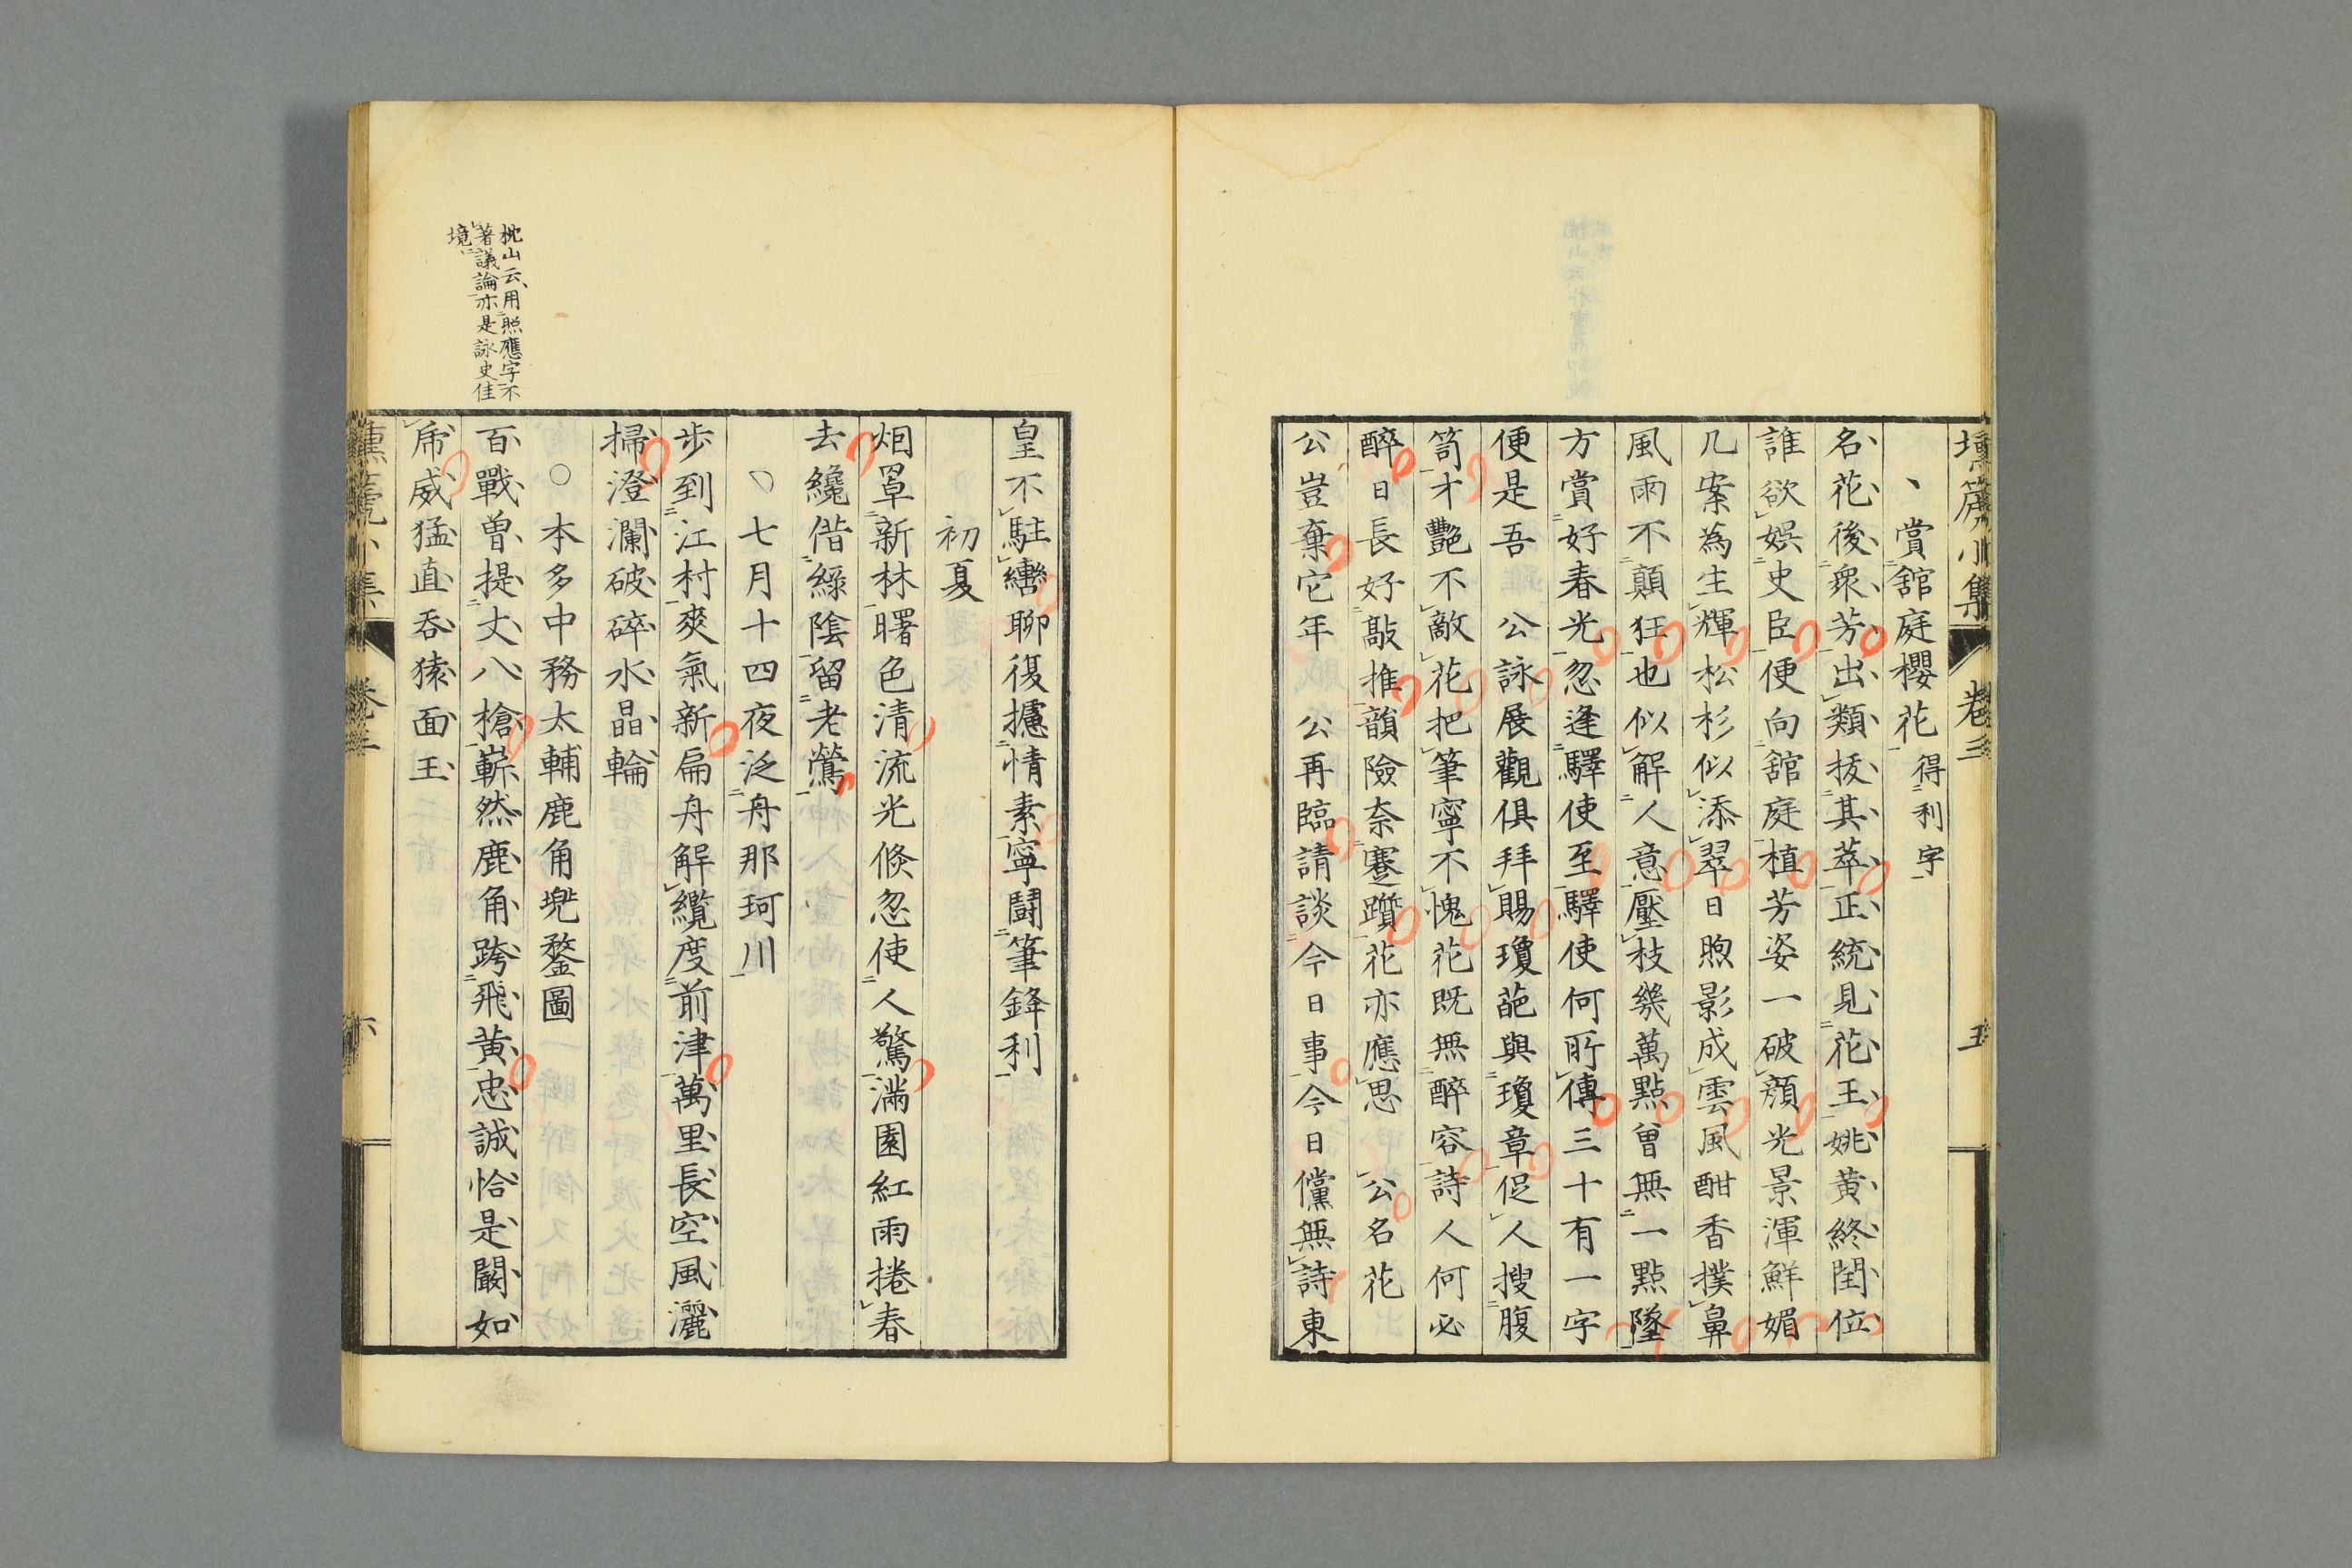 壎篪小集 卷三 五
、賞舘庭櫻花 得利字
名花後衆芳出類拔其萃正統見花王姚黄終閏位
誰欲娯史臣便向舘庭植芳姿一破顔光景渾鮮媚
几案為生輝松杉似添翠日煦影成雲風酣香撲鼻
風雨不顛狂也似解人意壓枝幾萬點曾無一點墜
方賞好春光忽逢驛使至驛使何所傳三十有一字
便是吾 公詠展觀俱拜賜瓊葩與瓊章促人搜腹
笥才艷不敵花把筆寧不愧花既無醉容詩人何必
醉日長好敲推韻險奈蹇躓花亦應思 公名花
公豈棄它年 公再臨請談今日事今日儻無詩東
皇不駐轡聊復攄情素寧鬪筆鋒利
初夏
烟罩新林曙色清流光倐忽使人驚滿園紅雨捲春
去纔偕緑陰留老鶯
○七月十四夜泛舟那珂川
步到江村爽氣新扁舟解纜度前津萬里長空風灑
掃澄瀾破碎水晶輪
○本多中務太輔鹿角兜鍪圖
百戰曽提丈八槍嶄然鹿角跨飛黄忠誠恰是闞如
虎威猛直呑猿面王
枕山云用照應字不
著議論亦是詠史佳
境
壎篪小集 卷三 六